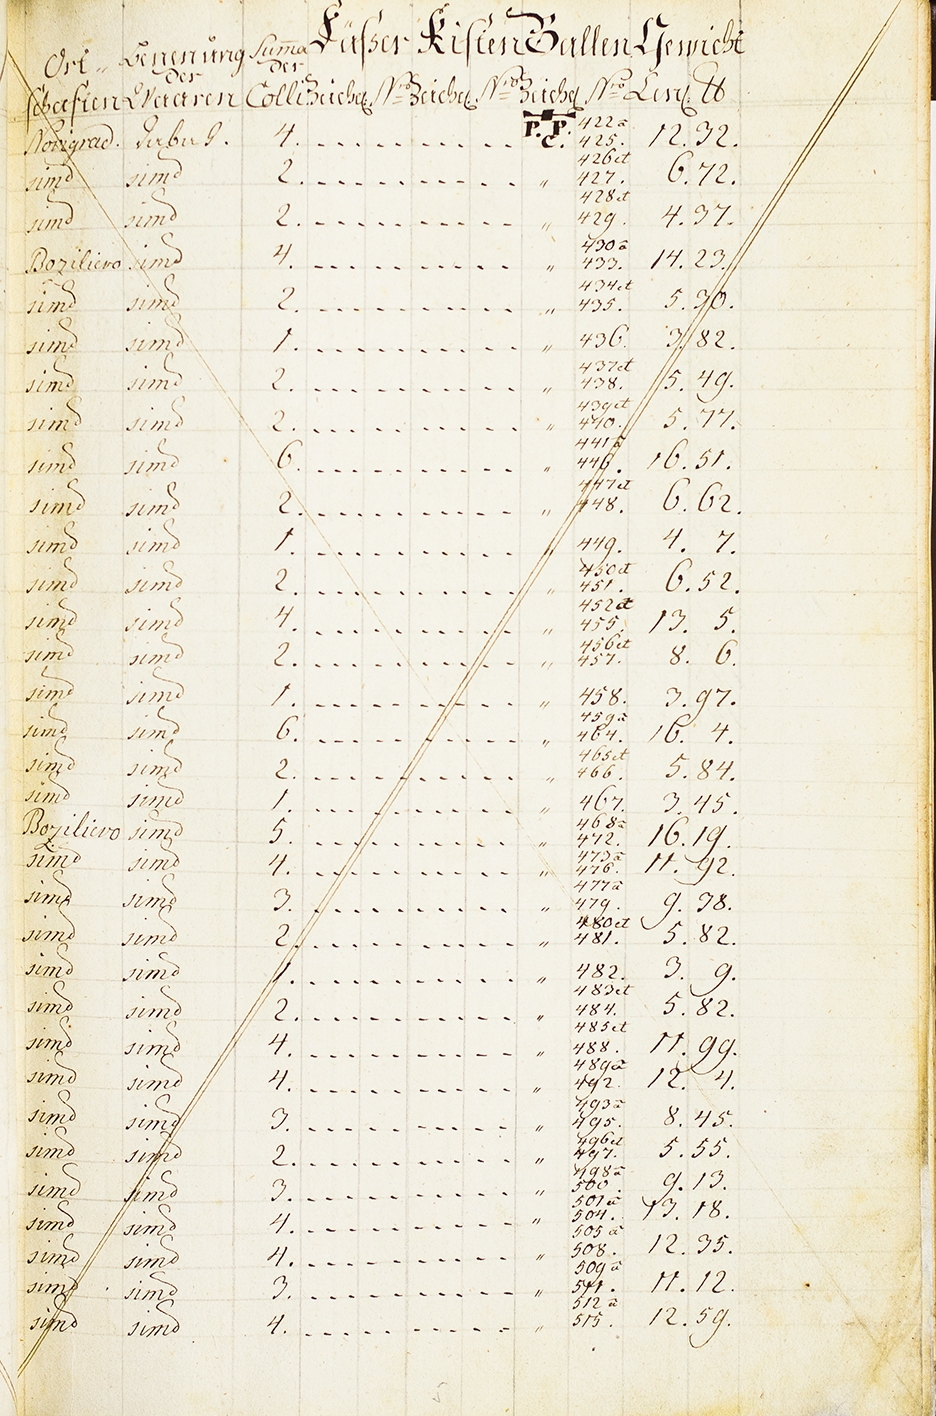 Ort- Benennung Summa Fässer Kisten Ballen Gewicht
der der
schaften Waaren Colli Zeichen Nro Zeichen Nro Zeichen Nro Cent. ℔
Novigrad. Tabak. 4. P. P. C. 422 a 425. 12. 32.
simd simd 2. „ 426 et 427. 6. 72.
simd simd 2. „ 428 et 429. 4. 37.
Bozilievo simd 4. „ 430 a 433. 14. 23.
simd simd 2. „ 434 et 435. 5. 30.
simd simd 1. „ 436. 3. 82.
simd simd 2. „ 437 et 438. 5. 49.
simd simd 2. „ 439 et 440. 5. 77.
simd simd 6. „ 441 a 446. 16. 51.
simd simd 2. „ 447 et 448. 6. 62.
simd simd 1. „ 449. 4. 7.
simd simd 2. „ 450 et 451. 6. 52.
simd simd 4. „ 452 a 455. 13. 5.
simd simd 2. „ 456 et 457. 8. 6.
simd simd 1. „ 458. 3. 97.
simd simd 6. „ 459 a 464. 16. 4.
simd simd 2. „ 465 et 466. 5. 84.
simd simd 1. „ 467. 3. 45.
Bozilievo simd 5. „ 468 a 472. 16. 19.
simd simd 4. „ 473 a 476. 11. 92.
simd simd 3. „ 477 a 479. 9. 38.
simd simd 2. „ 480 et 481. 5. 82.
simd simd 1. „ 482. 3. 9.
simd simd 2. „ 483 et 484. 5. 82.
simd simd 4. „ 485 et 488. 11. 99.
simd simd 4. „ 489 a 492. 12. 4.
simd simd 3. „ 493 a 495. 8. 45.
simd simd 2. „ 496 et 497. 5. 55.
simd simd 3. „ 498 a 500. 9. 13.
simd simd 4. „ 501 a 504. 13. 18.
simd simd 4. „ 505 a 508. 12. 35.
simd simd 3. „ 509 a 511. 11. 12.
simd simd 4. „ 512 a 515. 12. 59.